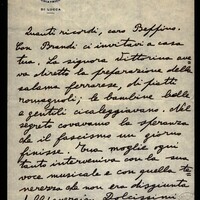 DI LUCCA
Quanti ricordi, caro Beppino.
Con Brandi ci invitavi a casa
tua. La signora Vittorina ave
va diretto la preparazione della
salama ferrarese, di piatti
romagnoli; le bambine belle
e gentili cicaleggiavano. Nel
segreto covavamo la speranza
che il fascismo un giorno
finisse. Tua moglie ogni
tanto interveniva con la sua
voce musicale e con quella te
nerezza che non era disgiunta
Dolcissimi